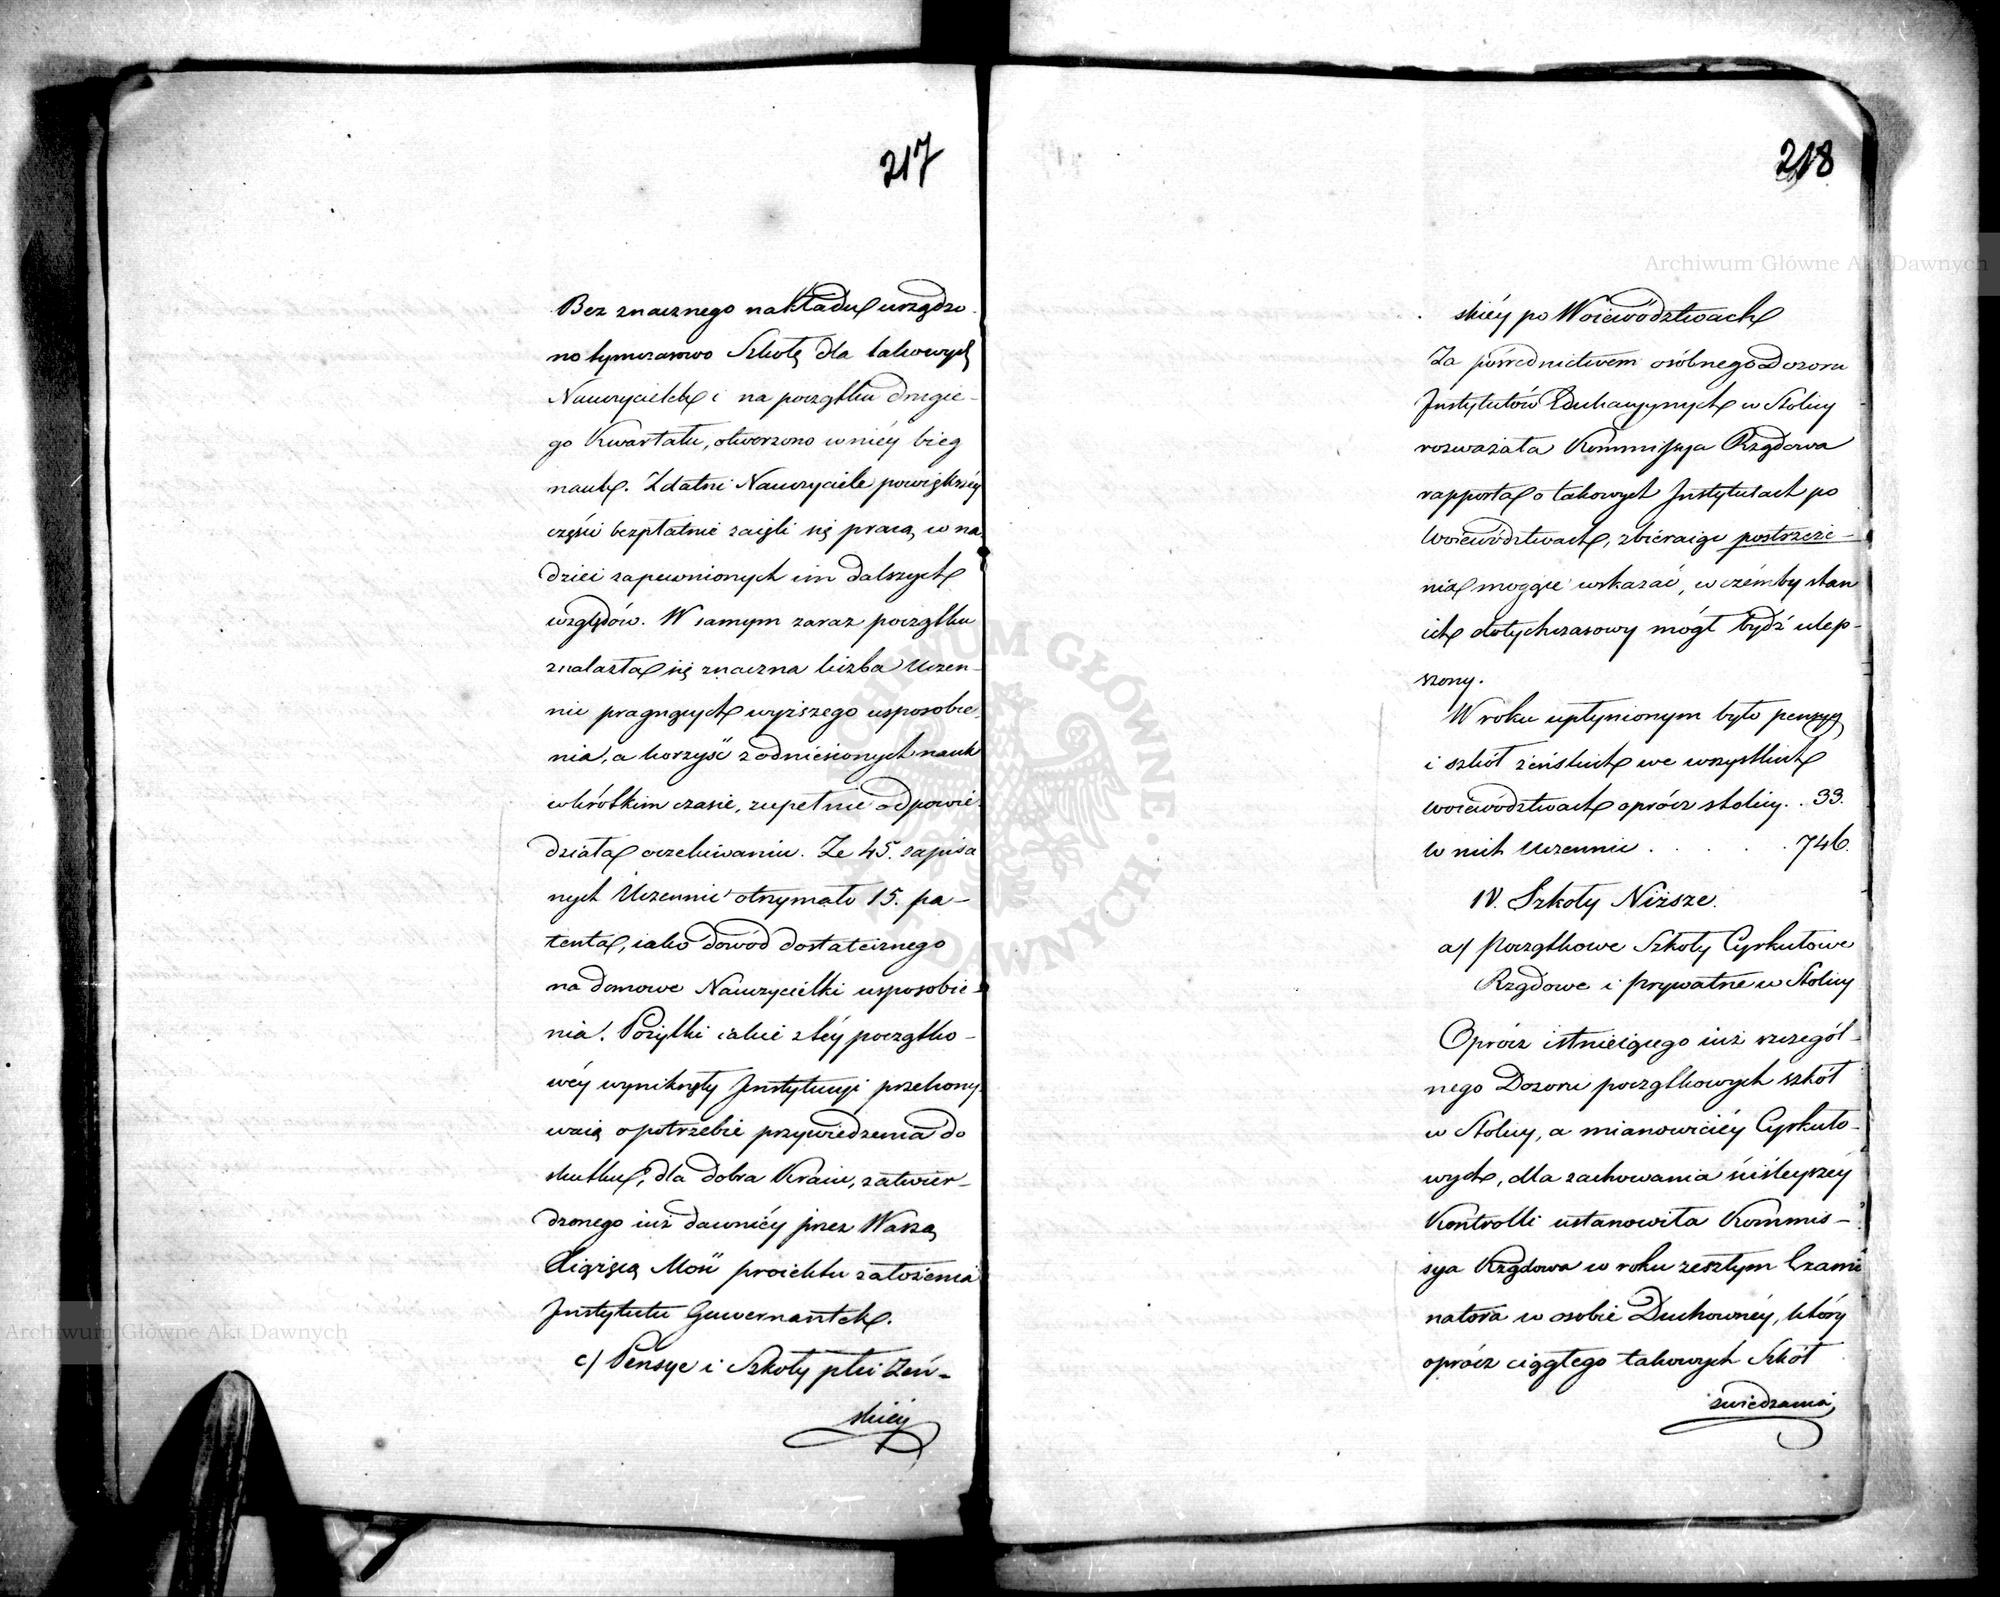 217
Bez znacznego nakładu urządzo-
no tymczasowo Szkołę dla takowych
Nauczycielek i na początku drugie-
go Kwartału, otworzono w niéy bieg
nauk. Zdatni Nauczyciele powiększéy
części bezpłatnie zaięli się pracą, w na-
dziei zapewnionych im dalszych
względów. W samym zaraz początku
znalazła się znaczna liczba Uczen-
nic pragnących wyższego usposobie-
nia, a korzyść z odniesionych nauk
w krótkim czasie, zupełnie odpowie-
działa oczekiwaniu. Ze 45. zapisa
nych Uczennic otrzymało 15. pa-
tenta, iako dowód dostatecznego
na domowe Nauczycielki usposobie-
nia. Pożytki iakie z téy początko-
wéy wyniknęły Instytucyi przekony-
waią o potrzebie przywiedzenia do
skutku, dla dobra Kraiu, zatwier-
dzonego iuż dawniéy przez Waszą
Xiążęcą Mość proiektu założenia
Instytutu Guwernantek.
c/ Pensye i Szkoły płci Żeń-
skiéy
218
skiéy po Woiewództwach
Za pośrednictwem osóbnego Dozoru
Instytutów Edukacyynych w Stolicy
rozważała Kommissya Rządowa
rapporta o takowych Instytutach po
Woiewództwach, zbieraiąc postrzeże-
nia mogące wskazać, w czémby stan
ich dotychczasowy mógł bydź ulep-
szony.
W roku upłynionym było pensyą
i szkół żeńskich we wszystkich
woiewództwach oprócz stolicy. . 33.
W nich Uczennic . . . . . 746.
IV. Szkoły Niższe.
a/ Początkowe Szkoły Cyrkułowe
Rządowe i prywatne w Stolicy
Oprócz istnieiącego iuż szczegól-
nego Dozoru początkowych szkół
w Stolicy, a mianowiciéy Cyrkuło-
wych, dla zachowania ściśleyszéy
Kontrolli ustanowiła Kommis-
sya Rządowa w roku zeszłym Exami
natora w osobie Duchownéy, który
oprócz ciągłego takowych Szkół
zwiedzania,
Archiwum Główne Akt Dawnych
ARCHIWUM GŁÓWNE AKT DAWNYCH
Archiwum Główne Akt Dawnych